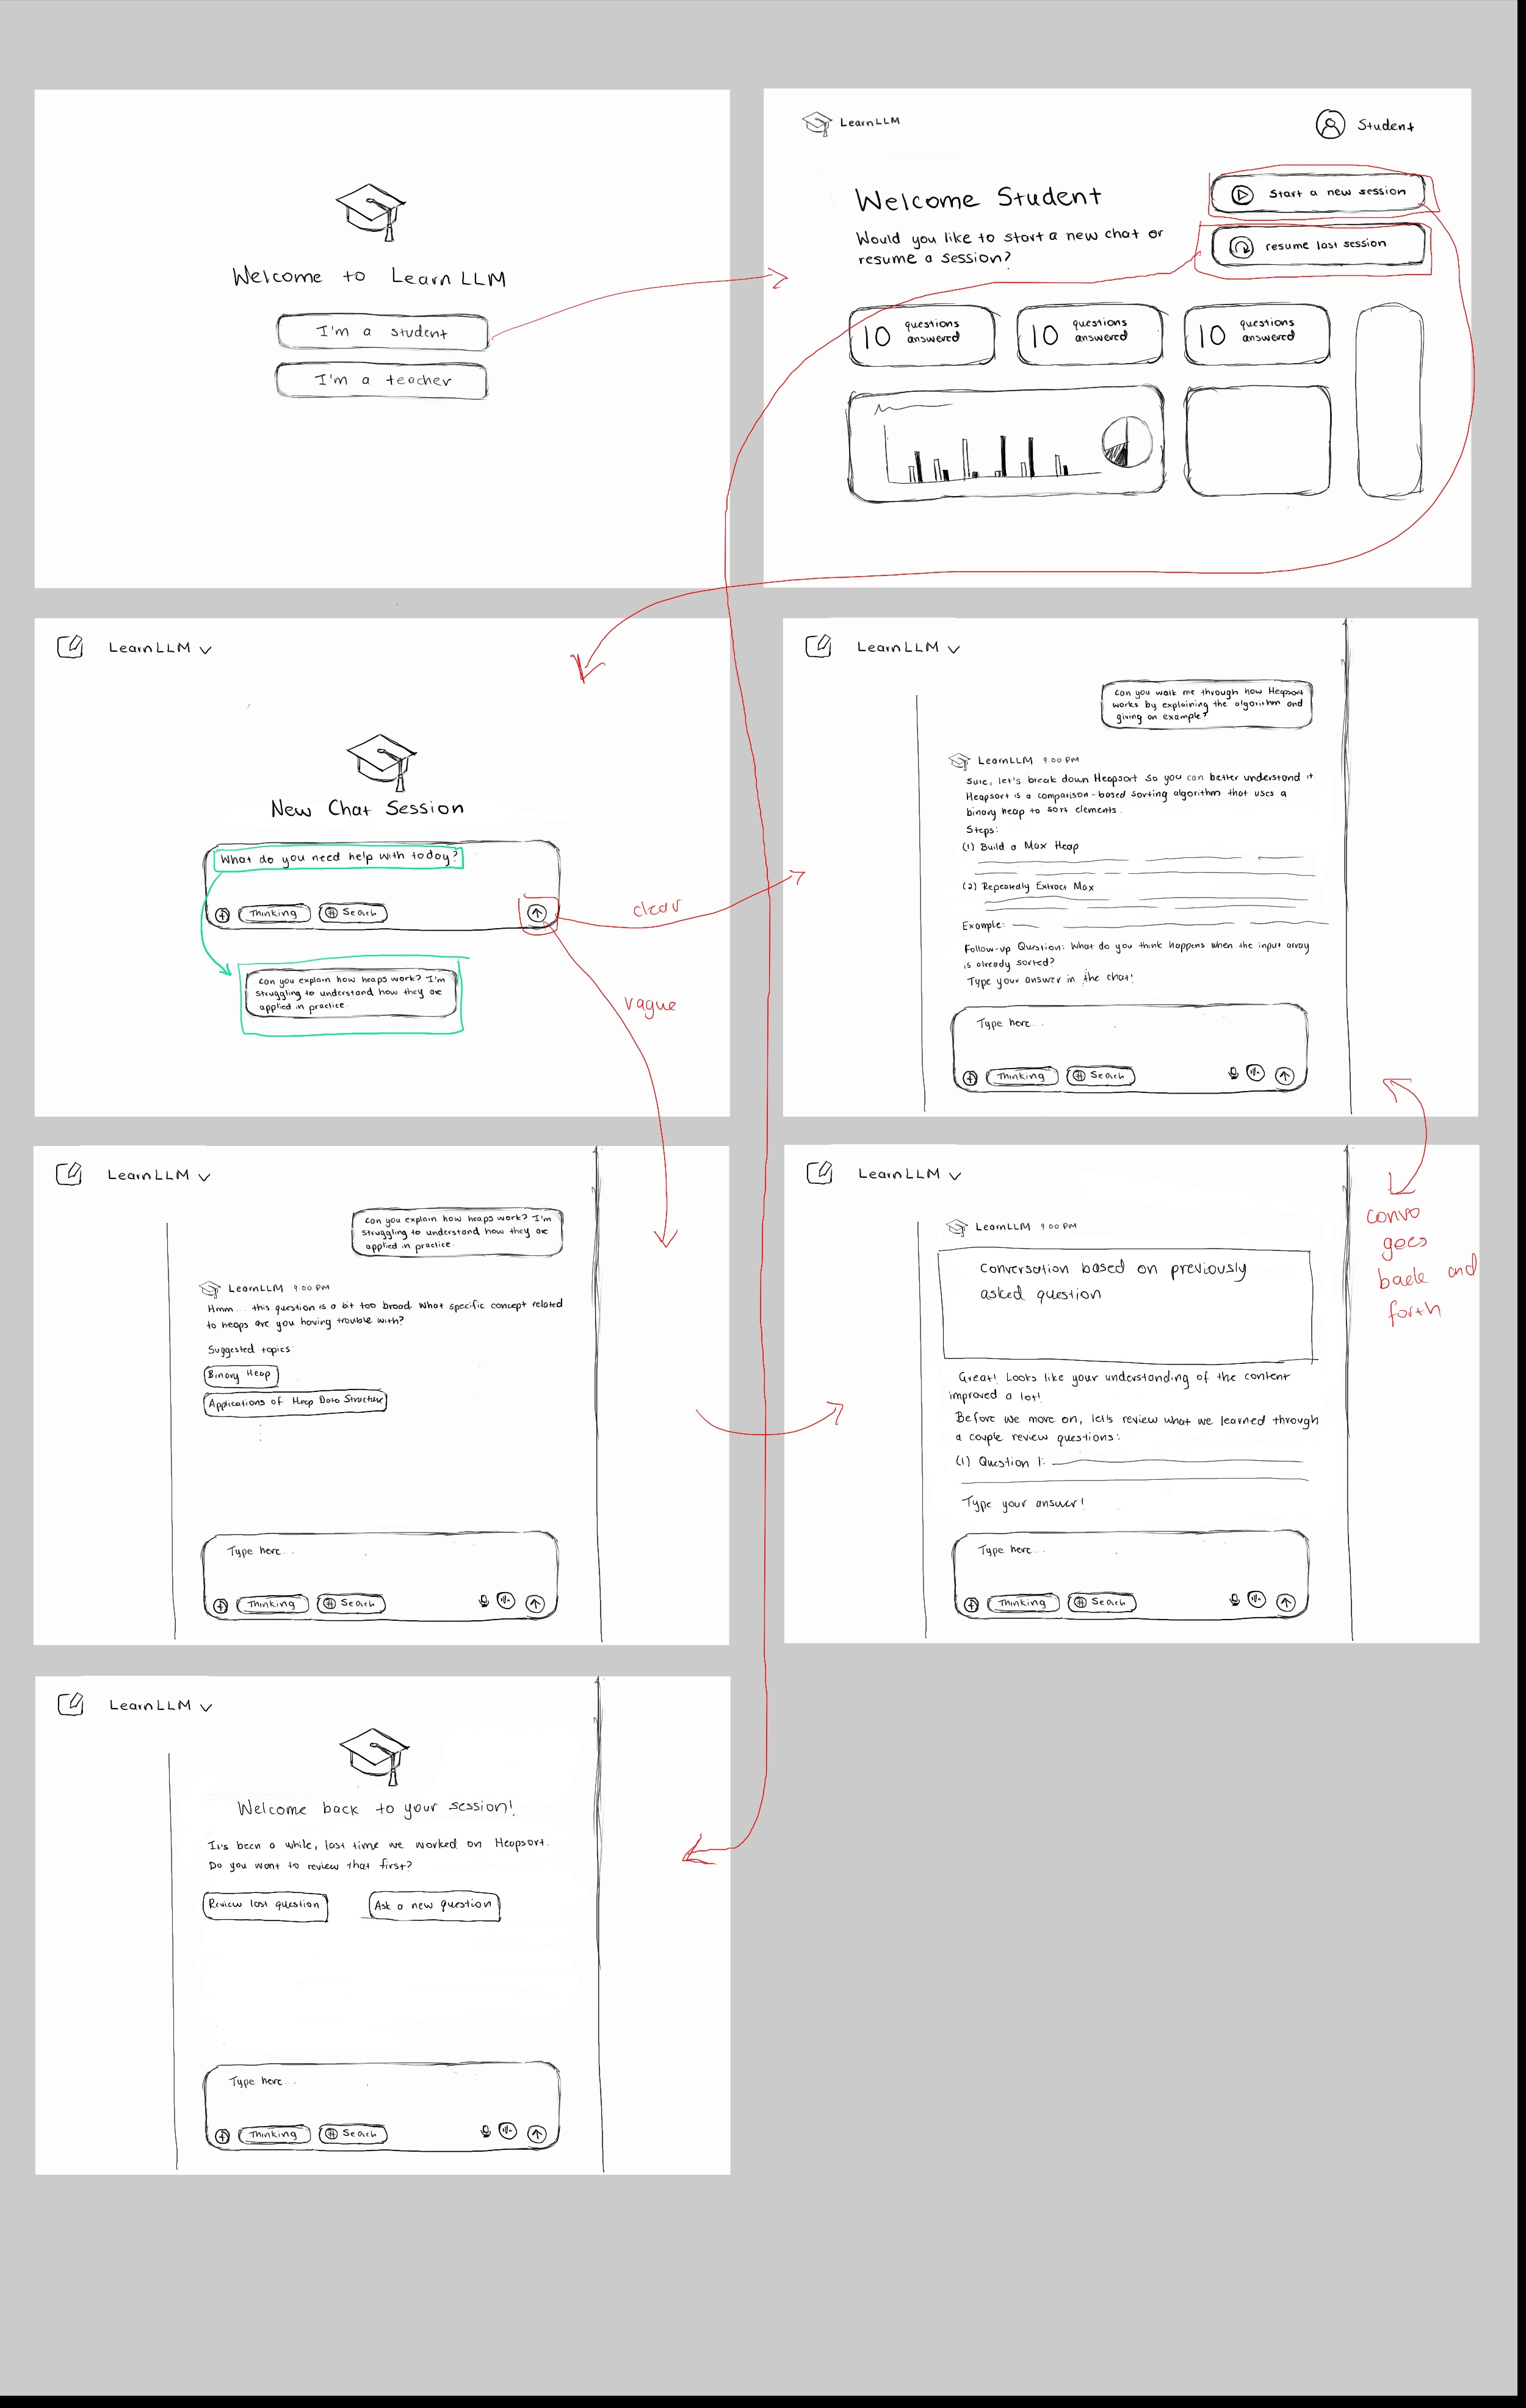 Welcome to LearnLLM
I'm a student
I'm a teacher
LearnLLM
Student
Welcome Student
Would you like to start a new chat or
resume a session?
Start a new session
resume last session
10 questions
answered
10 questions
answered
10 questions
answered
LearnLLM
New Chat Session
What do you need help with today?
Thinking
Search
Can you explain how heaps work? I'm
struggling to understand how they are
applied in practice.
clear
vague
LearnLLM
Can you walk me through how Heapsort
works by explaining the algorithm and
giving an example?
LearnLLM 9:00 PM
Sure, let's break down Heapsort so you can better understand it.
Heapsort is a comparison-based sorting algorithm that uses a
binary heap to sort elements.
Steps:
(1) Build a Max Heap
(2) Repeatedly Extract Max
Example:
Follow-up Question: What do you think happens when the input array
is already sorted?
Type your answer in the chat!
Type here...
Thinking
Search
LearnLLM
Can you explain how heaps work? I'm
struggling to understand how they are
applied in practice.
LearnLLM 9:00 PM
Hmm... this question is a bit too broad. What specific concept related
to heaps are you having trouble with?
Suggested topics
Binary Heap
Applications of Heap Data Structure
Type here...
Thinking
Search
LearnLLM
LearnLLM 9:00 PM
Conversation based on previously
asked question
Great! Looks like your understanding of the content
improved a lot!
Before we move on, let's review what we learned through
a couple review questions:
(1) Question 1:
Type your answer!
Type here...
Thinking
Search
convo
goes
back and
forth
LearnLLM
Welcome back to your session!
It's been a while, last time we worked on Heapsort.
Do you want to review that first?
Review last question
Ask a new question
Type here...
Thinking
Search